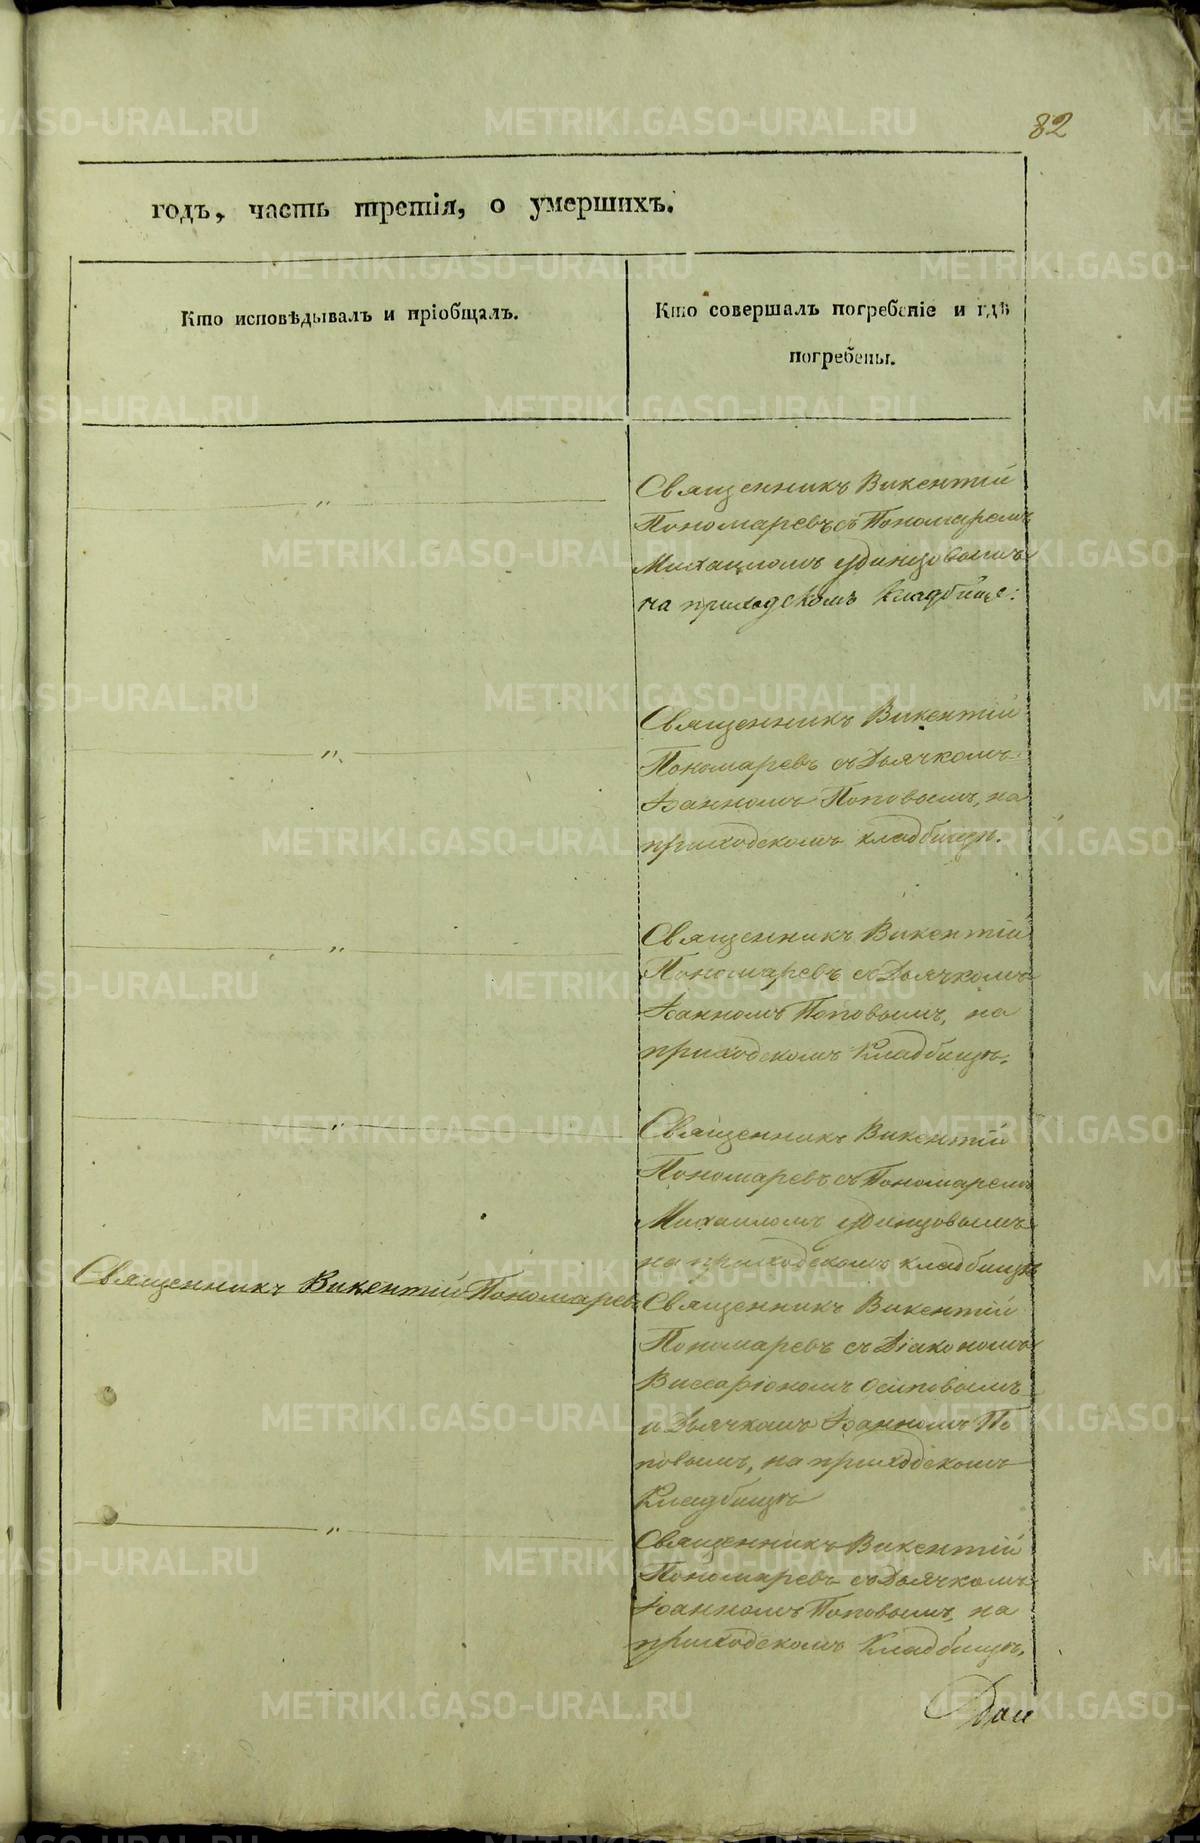 82
годъ, часть третія, о умершихъ.
Кто исповѣдывалъ и пріобщалъ.
Кто совершалъ погребеніе и гдѣ
погребены.
„
Священникъ Викентій
Пономаревъ съ Пономаремъ
Михаиломъ Удинцовымъ
на приходскомъ кладбище:
„
Священникъ Викентій
Пономаревъ съ Дьячкомъ
Іоанномъ Поповымъ, на
приходскомъ кладбищѣ.
„
Священникъ Викентій
Пономаревъ съ Дьячкомъ
Іоанномъ Поповымъ, на
приходскомъ кладбищѣ.
„
Священникъ Викентій
Пономаревъ съ Пономаремъ
Михаиломъ Удинцовымъ
на приходскомъ кладбищѣ
Священникъ Викентій Пономаревъ
Священникъ Викентій
Пономаревъ съ Діакономъ
Виссаріономъ Осиповымъ
и Дьячкомъ Іоанномъ По
повымъ, на приходскомъ
кладбищѣ
„
Священникъ Викентій
Пономаревъ съ Дьячкомъ
Іоанномъ Поповымъ, на
приходскомъ кладбищѣ.
METRIKI.GASO-URAL.RU